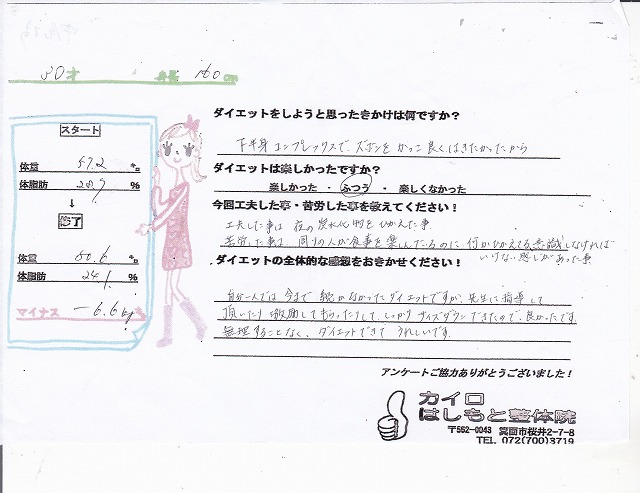 30才 身長 160cm
ダイエットをしようと思ったきかけは何ですか？
下半身コンプレックスで、ズボンをかっこ良くはきたかったから
スタート
体重 57.2 kg
体脂肪 28.9 %
↓
終了
体重 50.6 kg
体脂肪 24.1 %
マイナス －6.6kg
ダイエットは楽しかったですか？
楽しかった ・ ふつう ・ 楽しくなかった
今回工夫した事・苦労した事を教えてください！
工夫した事は 夜の炭水化物をひかえた事
苦労した事は、周りの人が食事を楽しんでるのに 何かひかえる意識しなければ
いけない感じがあった事
ダイエットの全体的な感想をおきかせください！
自分一人では今まで続かなかったダイエットですが、先生に指導して
頂いたり激励してもらったりして、しっかりサイズダウンできたので、良かったです。
無理することなく、ダイエットできて うれしいです。
アンケートご協力ありがとうございました！
カイロ
はしもと整体院
〒562-0043 箕面市桜井2-7-8
TEL 072(700)3719